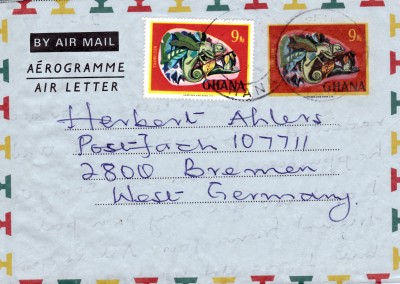 BY AIR MAIL
AÉROGRAMME
AIR LETTER
9
GHANA
9
GHANA
Herbert Ahlers
Postfach 107711
2800 Bremen
West Germany